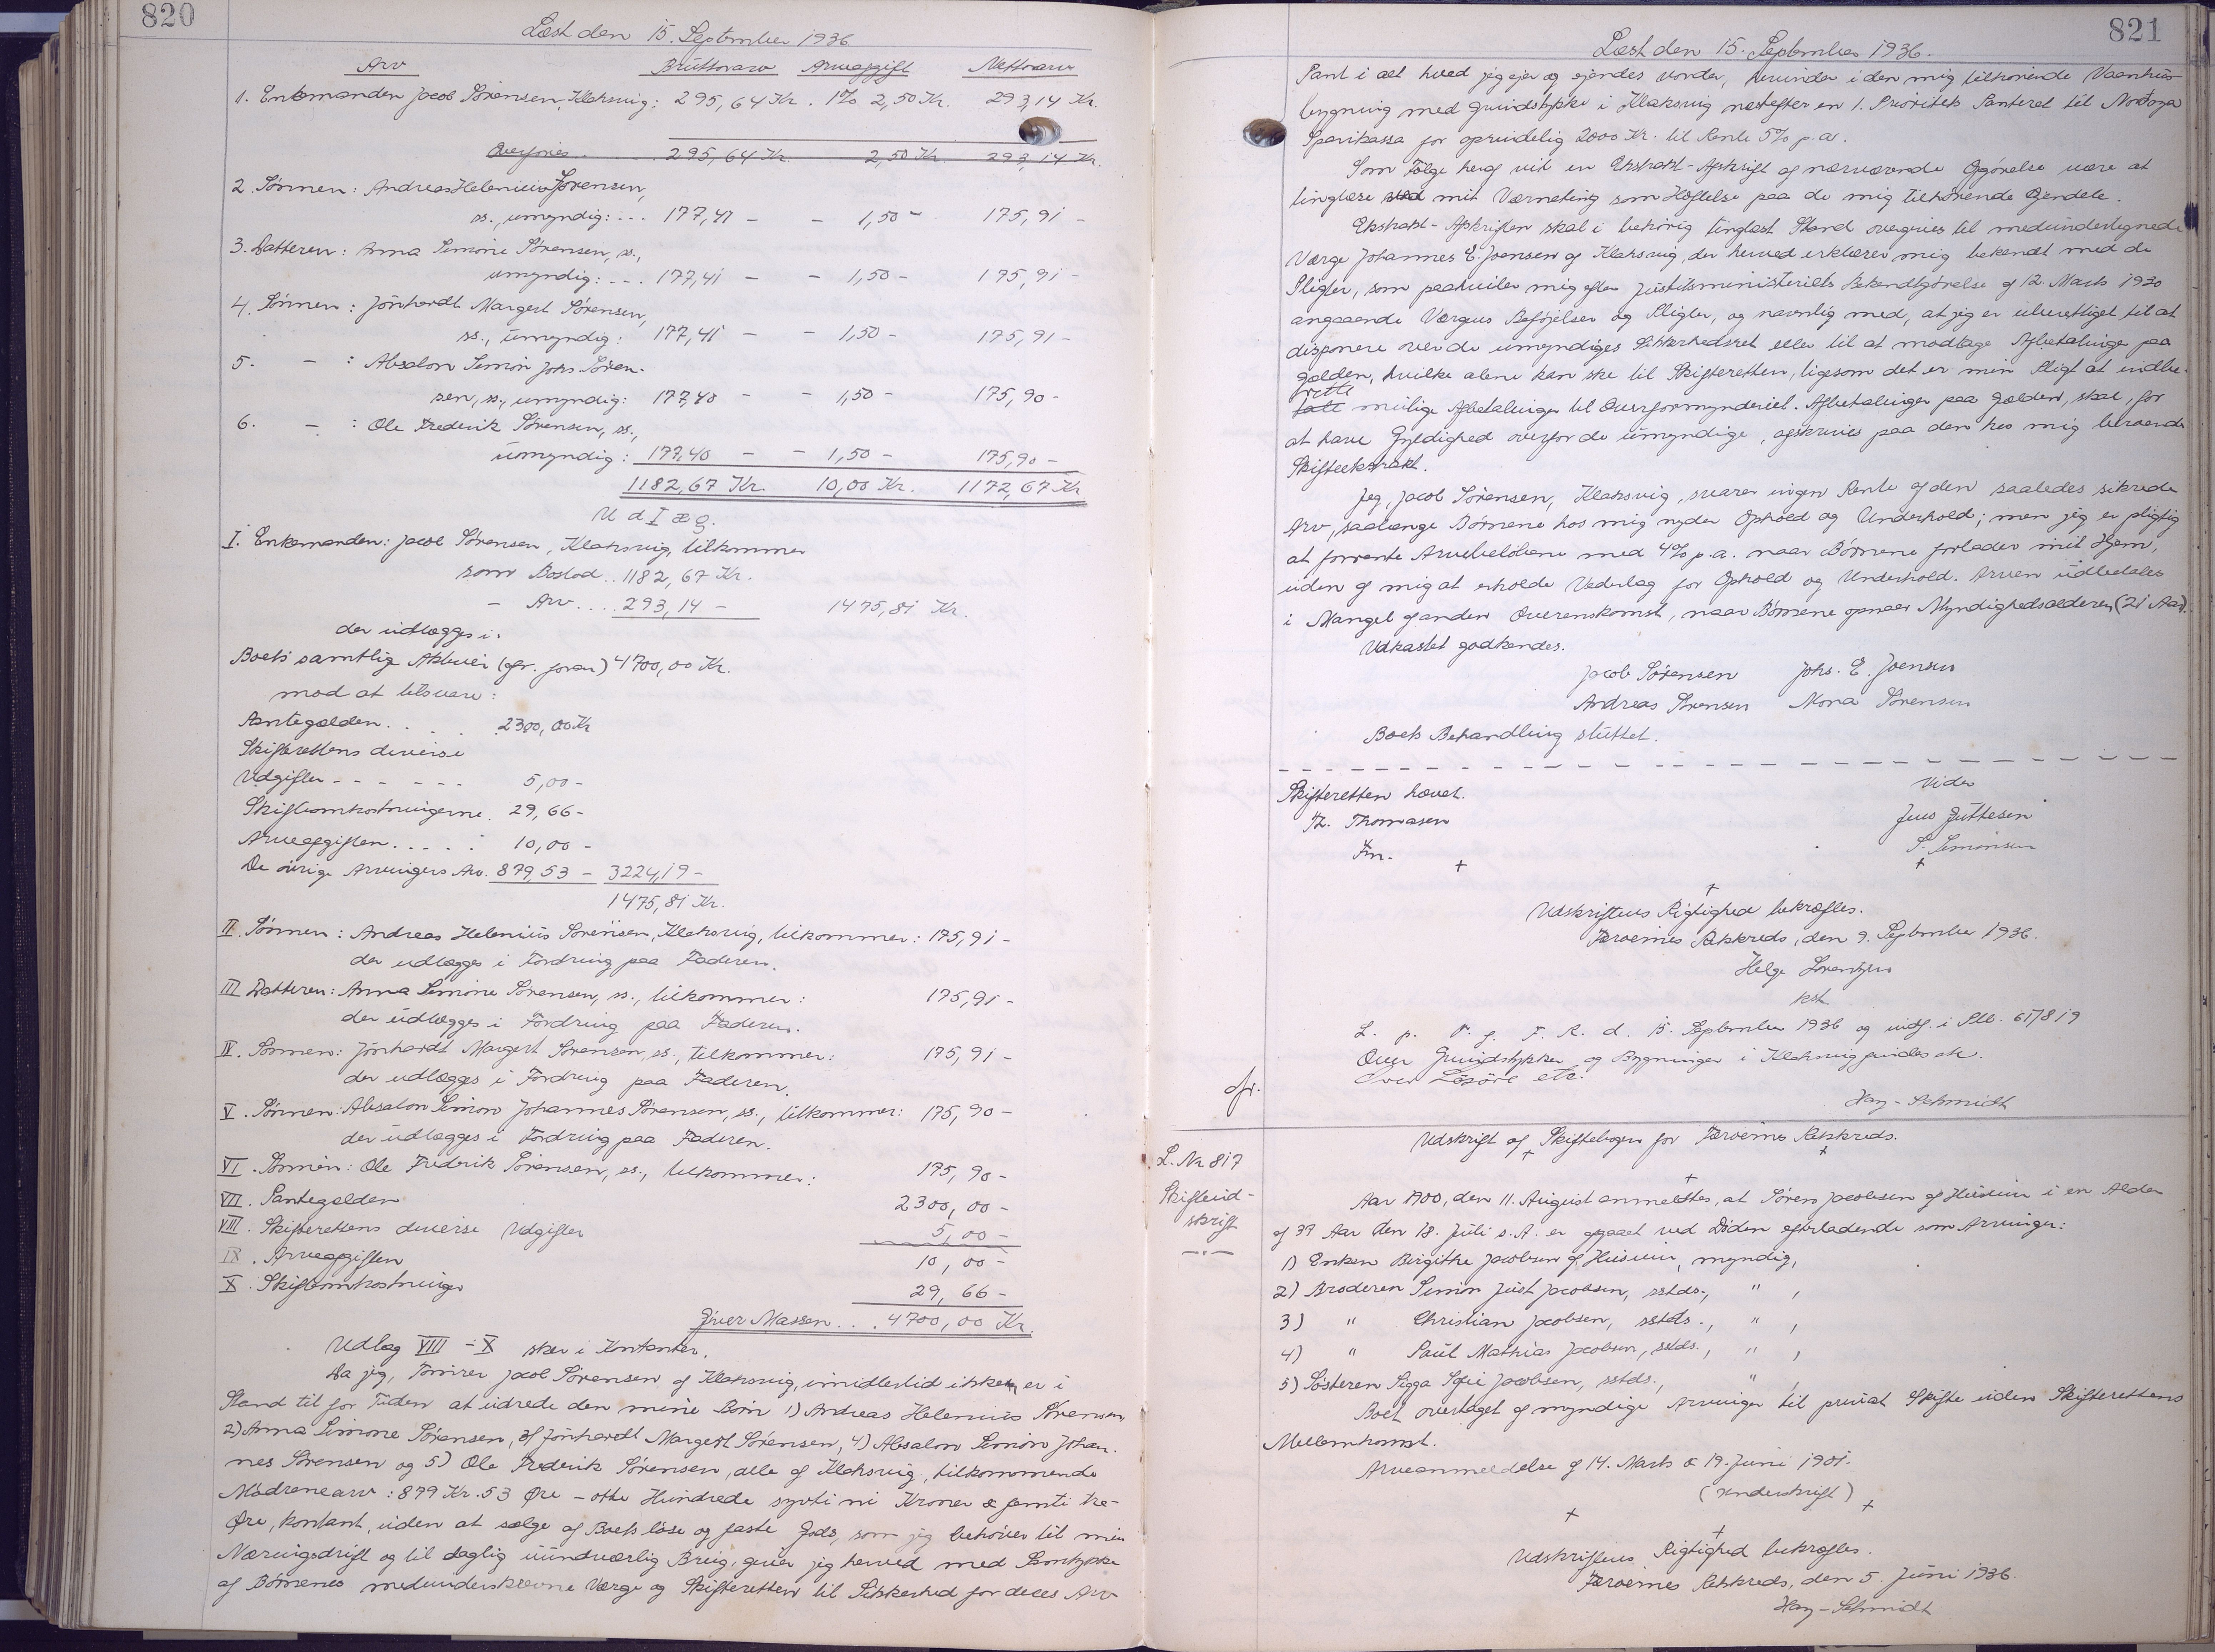 820
Læst den 15. September 1936
Arv Bruttoarv Arveafgift Nettoarv
1. Enkemanden Jacob Sørensen, Klaksvig: 295,64 Kr. 1% 2,50 Kr. 293,14 Kr.
Overføres 295,64 Kr. 2,50 Kr. 293,14 Kr.
2. Sønnen: Andreas Helenius Sørensen,
ss., umyndig: ... 177,41 - - 1,50 - 175,91 -
3. Datteren: Anna Simone Sørensen, ss.,
umyndig: ... 177,41 - - 1,50 - 175,91 -
4. Sønnen: Jönhardt Margert Sørensen,
ss., umyndig: 177,41 - - 1,50 - 175,91 -
5. - : Absalon Simon Johs. Søren-
sen, ss., umyndig: 177,40 - - 1,50 - 175,90 -
6. - : Ole Frederik Sørensen, ss.,
umyndig: 177,40 - - 1,50 - 175,90 -
1182,67 Kr. 10,00 Kr. 1172,67 Kr
Udlæg.
I. Enkemanden: Jacob Sørensen, Klaksvig, tilkommer
som Boslod .. 1182,67 Kr.
- Arv .... 293,14 - 1475,81 Kr.
der udlægges i:
Boets samtlig Aktiver (cfr. foran) 4700,00 Kr.
mod at tilsvare:
Pantegælden . . . . 2300,00 Kr
Skifterettens diverse
Udgifter - - - - - - 5,00 -
Skifteomkostningerne . 29,66 -
Arveafgiften . . . . . 10,00 -
De øvrige Arvingers Arv. 879,53 - 3224,19 -
1475,81 Kr.
II. Sønnen: Andreas Helenius Sørensen, Klaksvig, tilkommer: 175,91 -
der udlægges i Fordring paa Faderen.
III Datteren: Anna Simone Sørensen, ss., tilkommer: 175,91 -
der udlægges i Fordring paa Faderen.
IV. Sønnen: Jönhardt Margert Sørensen, ss., tilkommer: 175,91 -
der udlægges i Fordring paa Faderen.
V. Sønnen: Absalon Simon Johannes Sørensen, ss., tilkommer: 175,90 -
der udlægges i Fordring paa Faderen.
VI. Sønnen: Ole Frederik Sørensen, ss., tilkommer: 175,90 -
VII. Pantegælden 2300,00 -
VIII. Skifterettens diverse Udgifter 5,00 -
IX. Arveafgiften 10,00 -
X. Skifteomkostninger 29,66 -
Giver Massen . . . 4700,00 Kr.
Udlæg VIII - X sker i Kontanter.
Da jeg, Tømrer Jacob Sørensen af Klaksvig, imidlertid ikke er i
Stand til for Tiden at udrede den mine Børn 1) Andreas Helenius Sørensen,
2) Anna Simone Sørensen, 3) Jönhardt Margert Sørensen, 4) Absalon Simon Johan-
nes Sørensen og 5) Ole Frederik Sørensen, alle af Klaksvig, tilkommende
Mødrenearv: 879 Kr. 53 Øre - otte Hundrede syvti ni Kroner & femti tre -
Øre, kontant, uden at sælge af Boets løse og faste Gods, som jeg behøver til min
Næringsdrift og til daglig uundværlig Brug, giver jeg herved med Samtykke
af Børnenes medunderskrevne Værge og Skifteretten til Sikkerhed for deres Arv
821
Læst den 15. September 1936.
Pant i alt hvad jeg ejer og ejendes vorder, herunder i den mig tilhørende Vaanhus-
bygning med Grundstykke i Klaksvig næstefter en 1. Prioritets Panteret til Norðoya
Sparikassa for oprindelig 2000 Kr. til Rente 5% p.a.
Som Følge heraf vil en Ekstrakt-Afskrift af nærværende Opgørelse være at
tinglæse ved mit Værneting som Hæftelse paa de mig tilhørende Ejendele.
Ekstrakt-Afskriften skal i behørig tinglæst Stand overgives til medundertegnede
Værge Johannes E. Joensen af Klaksvig, der herved erklærer mig bekendt med de
Pligter, som paahviler mig efter Justitsministeriets Bekendtgørelse af 12. Marts 1930
angaaende Værgers Beføjelser og Pligter, og navnlig med, at jeg er uberettiget til at
disponere over de umyndiges Sikkerhedsret eller til at modtage Afbetalinger paa
Gælden, hvilke alene kan ske til Skifteretten, ligesom det er min Pligt at indbe-
rette
tale mulige Afbetalinger til Overformynderiet. Afbetalinger paa Gælden, skal, for
at have Gyldighed overfor de umyndige, afskrives paa den hos mig beroende
Skifteekstrakt.
Jeg, Jacob Sørensen, Klaksvig, svarer ingen Rente af den saaledes sikrede
Arv, saalænge Børnene hos mig nyder Ophold og Underhold; men jeg er pligtig
at forrente Arvebeløbene med 4% p.a. naar Børnene forlader mit Hjem,
uden af mig at erholde Vederlag for Ophold og Underhold. Arven udbetales
i Mangel af anden Overenskomst, naar Børnene opnaar Myndighedsalderen (21 Aar).
Udkastet godkendes.
Jacob Sørensen Johs. E. Joensen
Andreas Sørensen Mona Sørensen
Boets Behandling sluttet.
Skifteretten hævet. Vidner
Th. Thomasen Jens Guttesen
Fm. S. Simonsen
Udskriftens Rigtighed bekræftes.
Færøernes Retskreds, den 9. September 1936.
Helge Lorentzen
kst.
L. p. V. g. F. R. d. 15. September 1936 og indf. i Skb. 61/819
Over Grundstykker og Bygninger i Klaksvig findes ek.
Over Løsøre etc.
cfr.
Hay-Schmidt
L. Nr 817
Skifteud-
skrift
Udskrift af Skiftebogen for Færøernes Retskreds.
Aar 1900, den 11. August anmeldtes, at Søren Jacobsen af Husum i en Alder
af 37 Aar den 18. Juli s.A. er afgaaet ved Døden efterladende som Arvinger:
1) Enken Birgithe Jacobsen af Husum, myndig,
2) Broderen Simon Just Jacobsen, sstds., " ,
3) " Christian Jacobsen, sstds., " ,
4) " Paul Mathias Jacobsen, sstds., " ,
5) Søsteren Sigga Sofie Jacobsen, sstds., " ,
Boet overtaget af myndige Arvinger til privat Skifte uden Skifterettens
Mellemkomst.
Arveanmeldelse af 14. Marts & 19. Juni 1901.
(Underskrift)
Udskriftens Rigtighed bekræftes.
Færøernes Retskreds, den 5. Juni 1936.
Hay-Schmidt